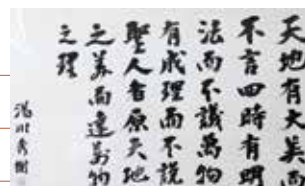 天地有大美而
不言四時有明
法而不議萬物
有成理而不説
聖人者原天地
之美而達萬物
之理